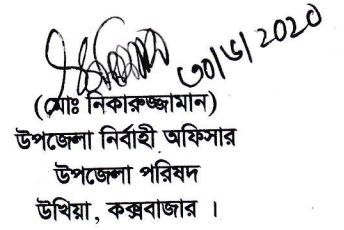 ৩০/৬/2020
(মোঃ নিকারুজ্জামান)
উপজেলা নির্বাহী অফিসার
উপজেলা পরিষদ
উখিয়া, কক্সবাজার ।